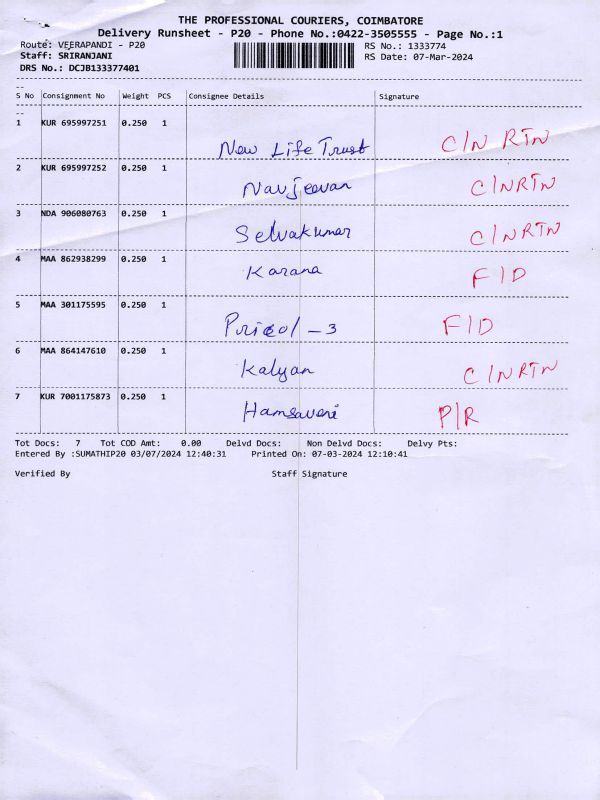 THE PROFESSIONAL COURIERS, COIMBATORE
Delivery Runsheet - P20 - Phone No.:0422-3505555 - Page No.:1
Route: VEERAPANDI - P20 RS No.: 1333774
Staff: SRIRANJANI RS Date: 07-Mar-2024
DRS No.: DCJB133377401
S No Consignment No Weight PCS Consignee Details Signature
1 KUR 695997251 0.250 1 New Life Trust C/N RTN
2 KUR 695997252 0.250 1 Navjeevan C/NRTN
3 NDA 906080763 0.250 1 Selvakumar C/NRTN
4 MAA 862938299 0.250 1 Karana F/D
5 MAA 301175595 0.250 1 Pricol - 3 F/D
6 MAA 864147610 0.250 1 Kalyan C/NRTN
7 KUR 7001175873 0.250 1 Hamsaveni P/R
Tot Docs: 7 Tot COD Amt: 0.00 Delvd Docs: Non Delvd Docs: Delvy Pts:
Entered By :SUMATHIP20 03/07/2024 12:40:31 Printed On: 07-03-2024 12:10:41
Verified By Staff Signature